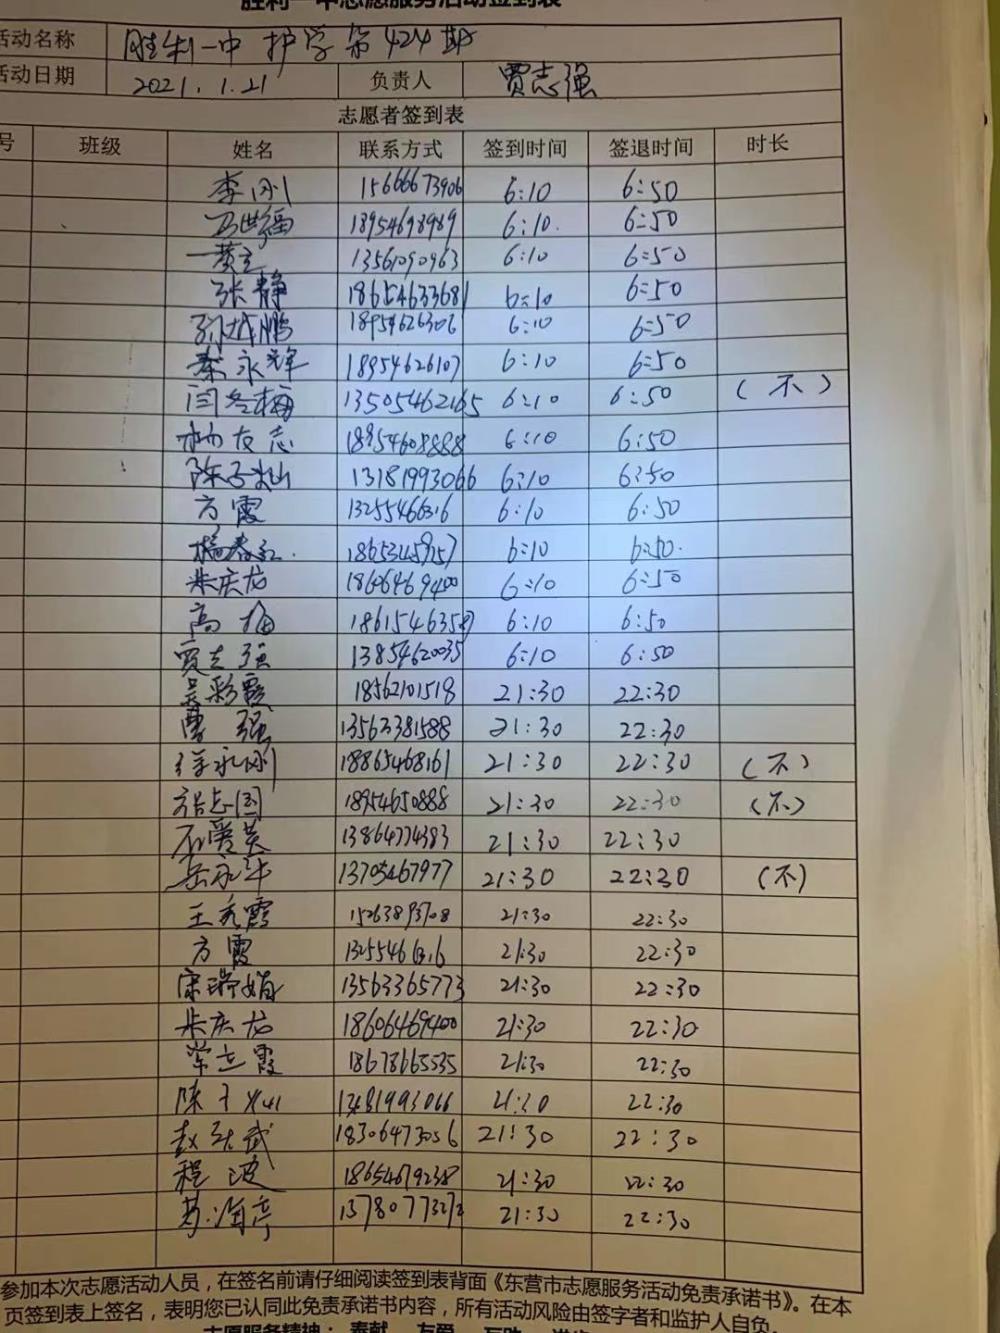 胜利一中志愿服务活动签到表
活动名称 胜利一中 护学第424期
活动日期 2021.1.21 负责人 贾志强
志愿者签到表
号 班级 姓名 联系方式 签到时间 签退时间 时长
李刚 15666673906 6:10 6:50
马世福 18954698989 6:10. 6:50
黄立 13561090963 6:10 6:50
张静 18654633681 6:10 6:50
孙城鹏 18954626306 6:10 6:50
秦永辉 18954626107 6:10 6:50
闫冬梅 13505462165 6:10 6:50 (不)
杨友志 18954608888 6:10 6:50
陈子灿 13181993066 6:10 6:50
方霞 13255466316 6:10 6:50
杨春红. 6:10 6:50.
朱庆龙 18606469400 6:10 6:50
高梅 6:10 6:50
贾志强 13854620035 6:10 6:50
吴彩霞 18562101518 21:30 22:30
曹强 13563381588 21:30 22:30
徐永刚 18865468161 21:30 22:30 (不)
张志国 18954650888 21:30 22:30 (不)
石爱英 13864774383 21:30 22:30
岳永华 13705467977 21:30 22:30 (不)
王秀霞 15263893708 21:30 22:30
方霞 13255466316 21:30 22:30
宋瑞娟 13563365773 21:30 22:30
朱庆龙 18606469400 21:30 22:30
荣立霞 18678665535 21:30 22:30
陈子灿 21:30 22:30
赵洪武 18306473056 21:30 22:30
程波 18654679238 21:30 22:30
苏海亭 21:30 22:30
参加本次志愿活动人员，在签名前请仔细阅读签到表背面《东营市志愿服务活动免责承诺书》。在本
页签到表上签名，表明您已认同此免责承诺书内容，所有活动风险由签字者和监护人自负。
志愿服务精神：奉献 友爱 互助 进步